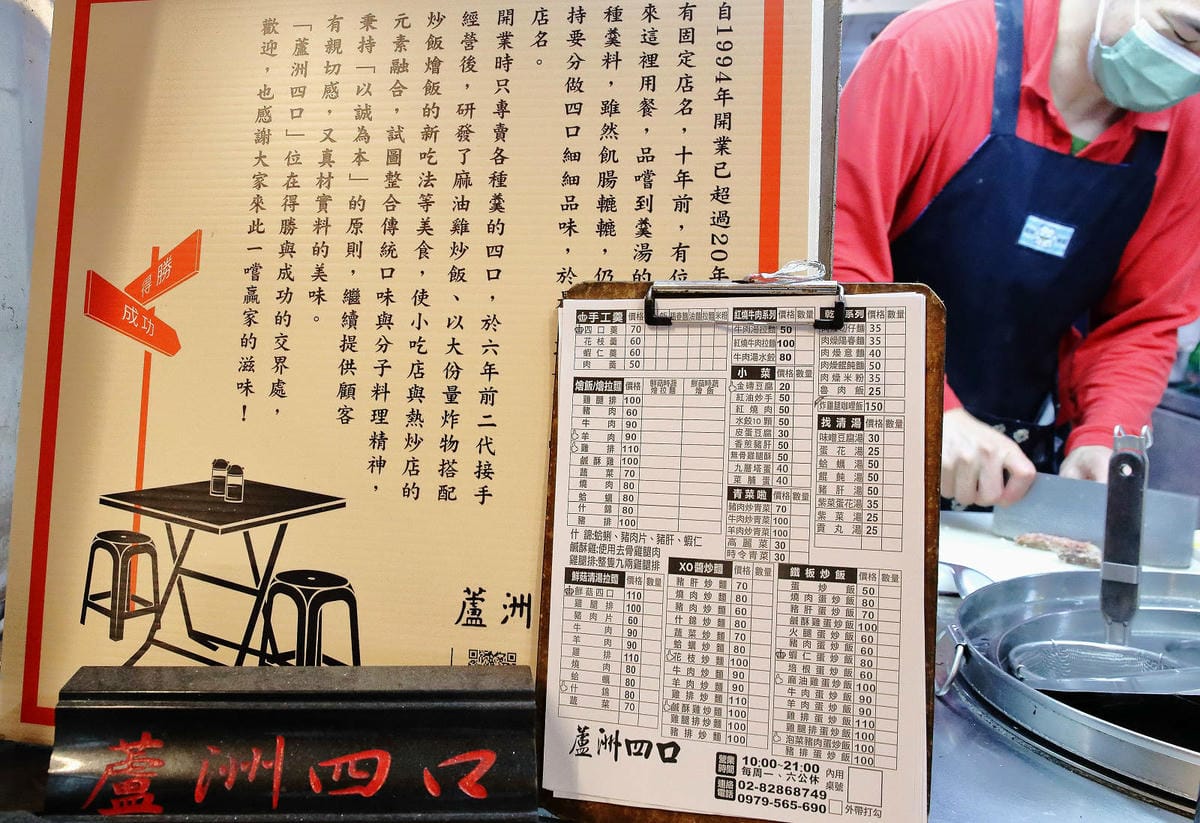 自1994年開業已超過20年
有固定店名，十年前，有位
來這裡用餐，品嚐到羹湯的
種羹料，雖然飢腸轆轆，仍
持要分做四口細細品味，於
店名。
開業時只專賣各種羹的四口，於六年前二代接手
經營後，研發了麻油雞炒飯、以大份量炸物搭配
炒飯燴飯的新吃法等美食，使小吃店與熱炒店的
元素融合，試圖整合傳統口味與分子料理精神，
秉持「以誠為本」的原則，繼續提供顧客
有親切感，又真材實料的美味。
「蘆洲四口」位在得勝與成功的交界處，
歡迎，也感謝大家來此一嚐贏家的滋味！
得勝
成功
蘆洲
蘆洲四口
手工羹 價格
四口羹 70
花枝羹 60
蝦仁羹 60
肉羹 50
燴飯/燴拉麵 價格 鮮菇時蔬燴拉麵 鮮菇時蔬燴飯
雞腿排 100
豬肉 60
牛肉 90
羊肉 90
雞排 110
鹹酥雞 100
蔬菜 70
燒肉 80
蛤蠣 80
什錦 80
豬排 100
什錦:蛤蜊、豬肉片、豬肝、蝦仁
鹹酥雞:使用去骨雞腿肉
雞腿排:整隻九兩雞腿排
鮮菇清湯拉麵 價格 數量
鮮菇四口 110
雞腿排 100
豬肉片 60
牛肉 90
羊肉 90
雞排 110
燒肉 80
蛤蠣 80
什錦 80
蔬菜 70
紅燒牛肉系列 價格 數量
牛肉湯拉麵 50
紅燒牛肉拉麵 100
牛肉湯水餃 80
小菜 價格 數量
金磚豆腐 20
紅油炒手 50
紅燒肉 50
水餃10顆 50
皮蛋豆腐 30
香煎豬肝 50
無骨雞腿酥 50
九層塔蛋 40
菜脯蛋 40
青菜啦 價格 數量
豬肉炒青菜 70
牛肉炒青菜 100
羊肉炒青菜 100
高麗菜 30
時令青菜 30
XO醬炒麵 價格 數量
豬肝炒麵 70
燒肉炒麵 80
豬肉炒麵 60
什錦炒麵 80
蔬菜炒麵 70
蛤蠣炒麵 80
花枝炒麵 100
牛肉炒麵 90
羊肉炒麵 90
雞排炒麵 110
鹹酥雞炒麵 100
雞腿排炒麵 100
豬排炒麵 100
系列 價格 數量
仔麵 35
肉燥陽春麵 35
肉燥意麵 40
肉燥餛飩麵 50
肉燥米粉 35
魯肉飯 25
炸雞腿咖哩飯 150
找清湯 價格 數量
味噌豆腐湯 30
蛋花湯 25
蛤蠣湯 50
餛飩湯 50
豬肝湯 50
紫菜蛋花湯 35
紫菜湯 25
貢丸湯 25
鐵板炒飯 價格 數量
蛋炒飯 50
燒肉蛋炒飯 80
豬肝蛋炒飯 70
鹹酥雞蛋炒飯 100
火腿蛋炒飯 60
豬肉蛋炒飯 60
蝦仁蛋炒飯 80
培根蛋炒飯 60
麻油雞蛋炒飯 100
牛肉蛋炒飯 90
羊肉蛋炒飯 90
雞排蛋炒飯 110
雞腿排蛋炒飯 100
泡菜豬肉蛋炒飯 100
豬排蛋炒飯 100
蘆洲四口
營業時間 10:00~21:00
每周一、六公休
連絡電話 02-82868749
0979-565-690
內用桌號
外帶打勾